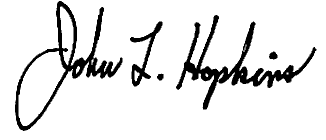 John L. Hopkins